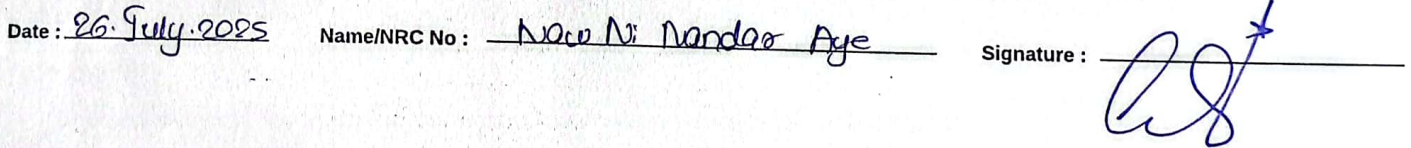 Date : 26. July. 2025 Name/NRC No : Naw Ni Nandar Aye Signature :